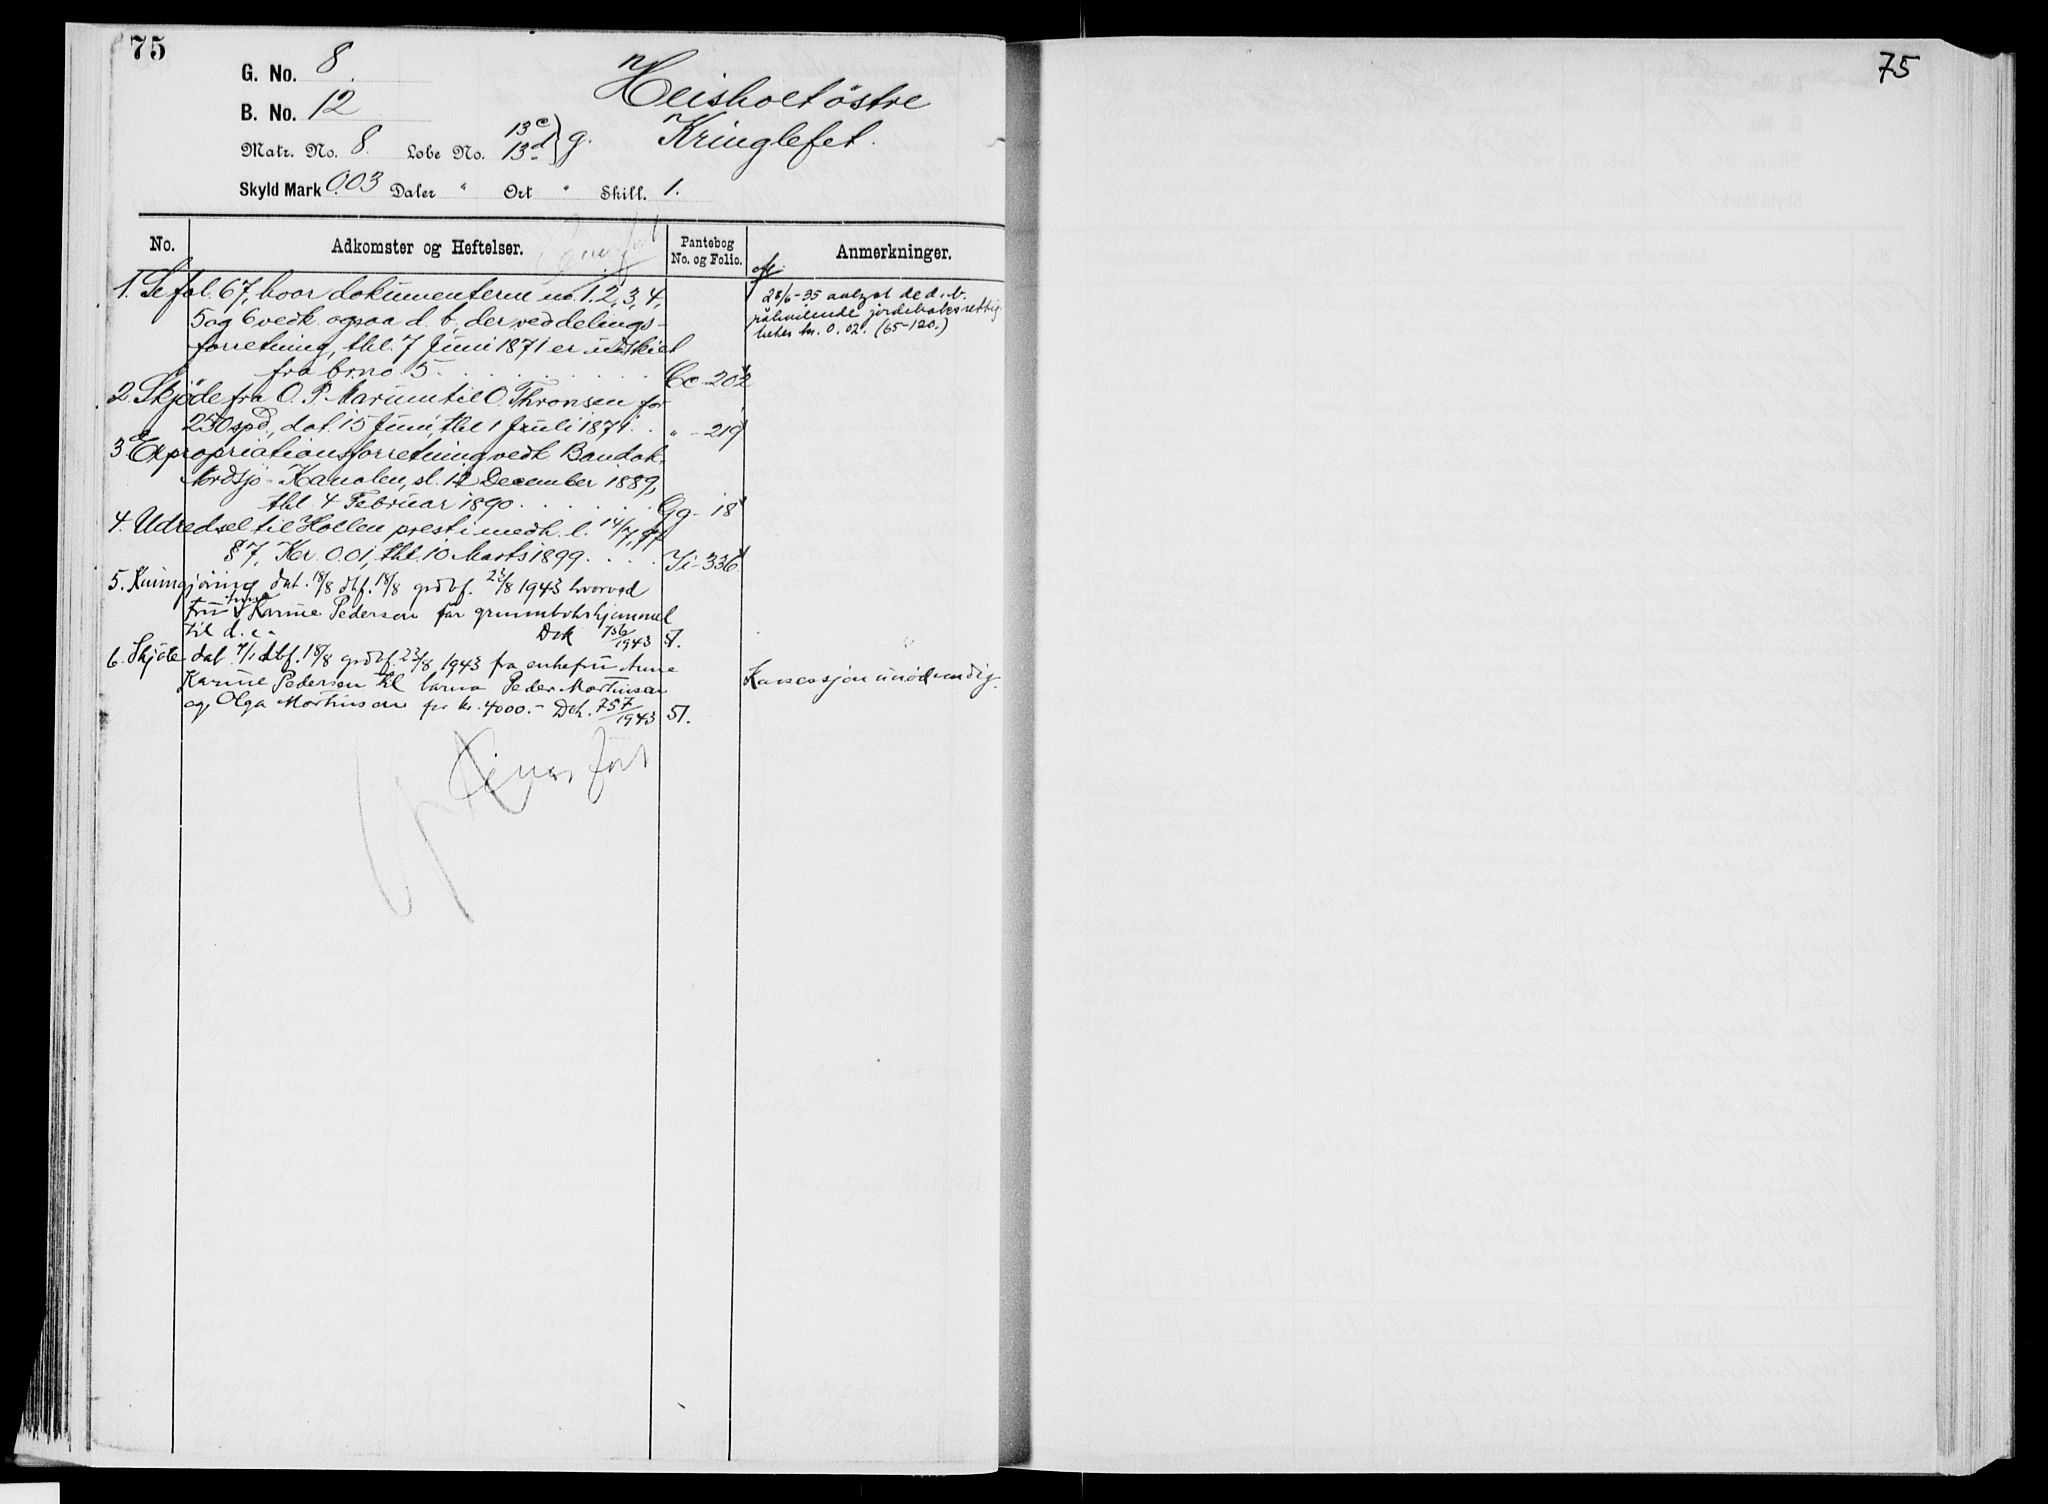 75
G. No. 8.
B. No. 12
Heisholt östre
Kringlefet.
Matr. No. 8. Løbe No. 13c 13d } g.
Skyld Mark 0.03 Daler " Ort " Skill. 1.
No. Adkomster og Heftelser. Pantebog No. og Folio. Anmerkninger.
1. Se fol. 67, hvor dokumenterne no. 1. 2, 3, 4,
5 og 6 vedk. ogsaa d. b., der ved delings-
forretning, thl. 7 Juni 1871 er udskiet
fra br.no 5 . . . . . . Cc - 202
28/6-35 avlyst de d. b.
påhvilende jordeboksrettig-
heter kr. 0.02. (65-120.)
2. Skjöde fra O. P. Marum til O. Thronsen for
250 spd., dat. 15 Juni, thl 1 Juli 1871. . " - 219
3. Expropriationsforretning vedk Bandak-
Nordsjö - Kanalen, sl. 12 December 1889,
thl 4 Februar 1890. . . . . . Gg - 18
4. Udredsel til Hollen prest i medh. l. 14/7, 97
§ 7, Kr. 0.01, thl. 10 Marts 1899. . . . Ii - 336
5. Kunngjöring dat. 18/8 dbf. 18/8 grdbf. 23/8 1943 hvorved
fru Anne Karine Pedersen får grunnbokshjemmel
til d. e. Dok 756/1943 51.
6. Skjöte dat 7/1 dbf. 18/8 grdbf. 23/8 1943 fra enkefru Anne
Karine Pedersen til barna Peder Martinsen
og Olga Martinsen for kr. 4000.- Dok. 757/1943 51.
Konsesjon unödvendig.
75